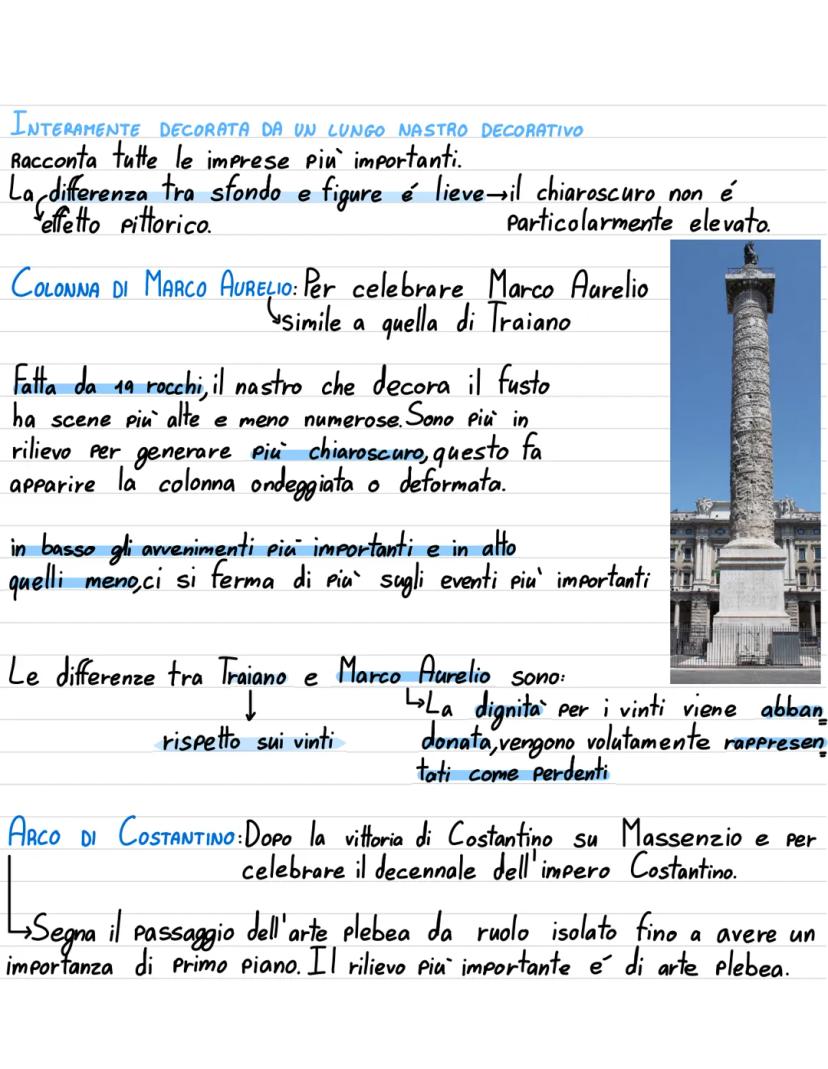 INTERAMENTE DECORATA DA UN LUNGO NASTRO DECORATIVO
Racconta tutte le imprese più importanti.
La differenza tra sfondo e figure é lieve→il chiaroscuro non é
effetto pittorico. particolarmente elevato.
COLONNA DI MARCO AURELIO: Per celebrare Marco Aurelio
simile a quella di Traiano
Fatta da 19 rocchi, il nastro che decora il fusto
ha scene più alte e meno numerose. Sono più in
rilievo per generare più chiaroscuro, questo fa
apparire la colonna ondeggiata o deformata.
in basso gli avvenimenti più importanti e in alto
quelli meno, ci si ferma di più sugli eventi più importanti
Le differenze tra Traiano e Marco Aurelio sono:
↓ ↳La dignità per i vinti viene abban
rispetto sui vinti donata, vengono volutamente rappresen
tati come perdenti
ARCO DI COSTANTINO: Dopo la vittoria di Costantino su Massenzio e per
celebrare il decennale dell'impero Costantino.
↳Segna il passaggio dell'arte plebea da ruolo isolato fino a avere un
importanza di primo piano. Il rilievo più importante é di arte plebea.